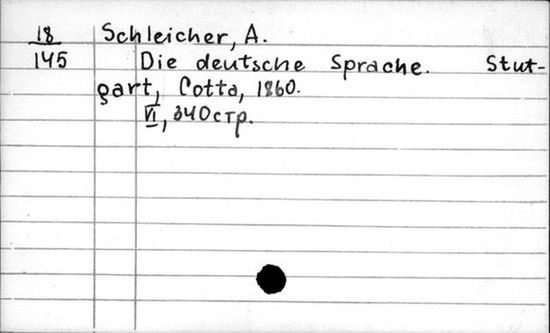 18 Schleicher, A.
145 Die deutsche Sprache. Stut-
gart, Cotta, 1860.
VI, 340 стр.